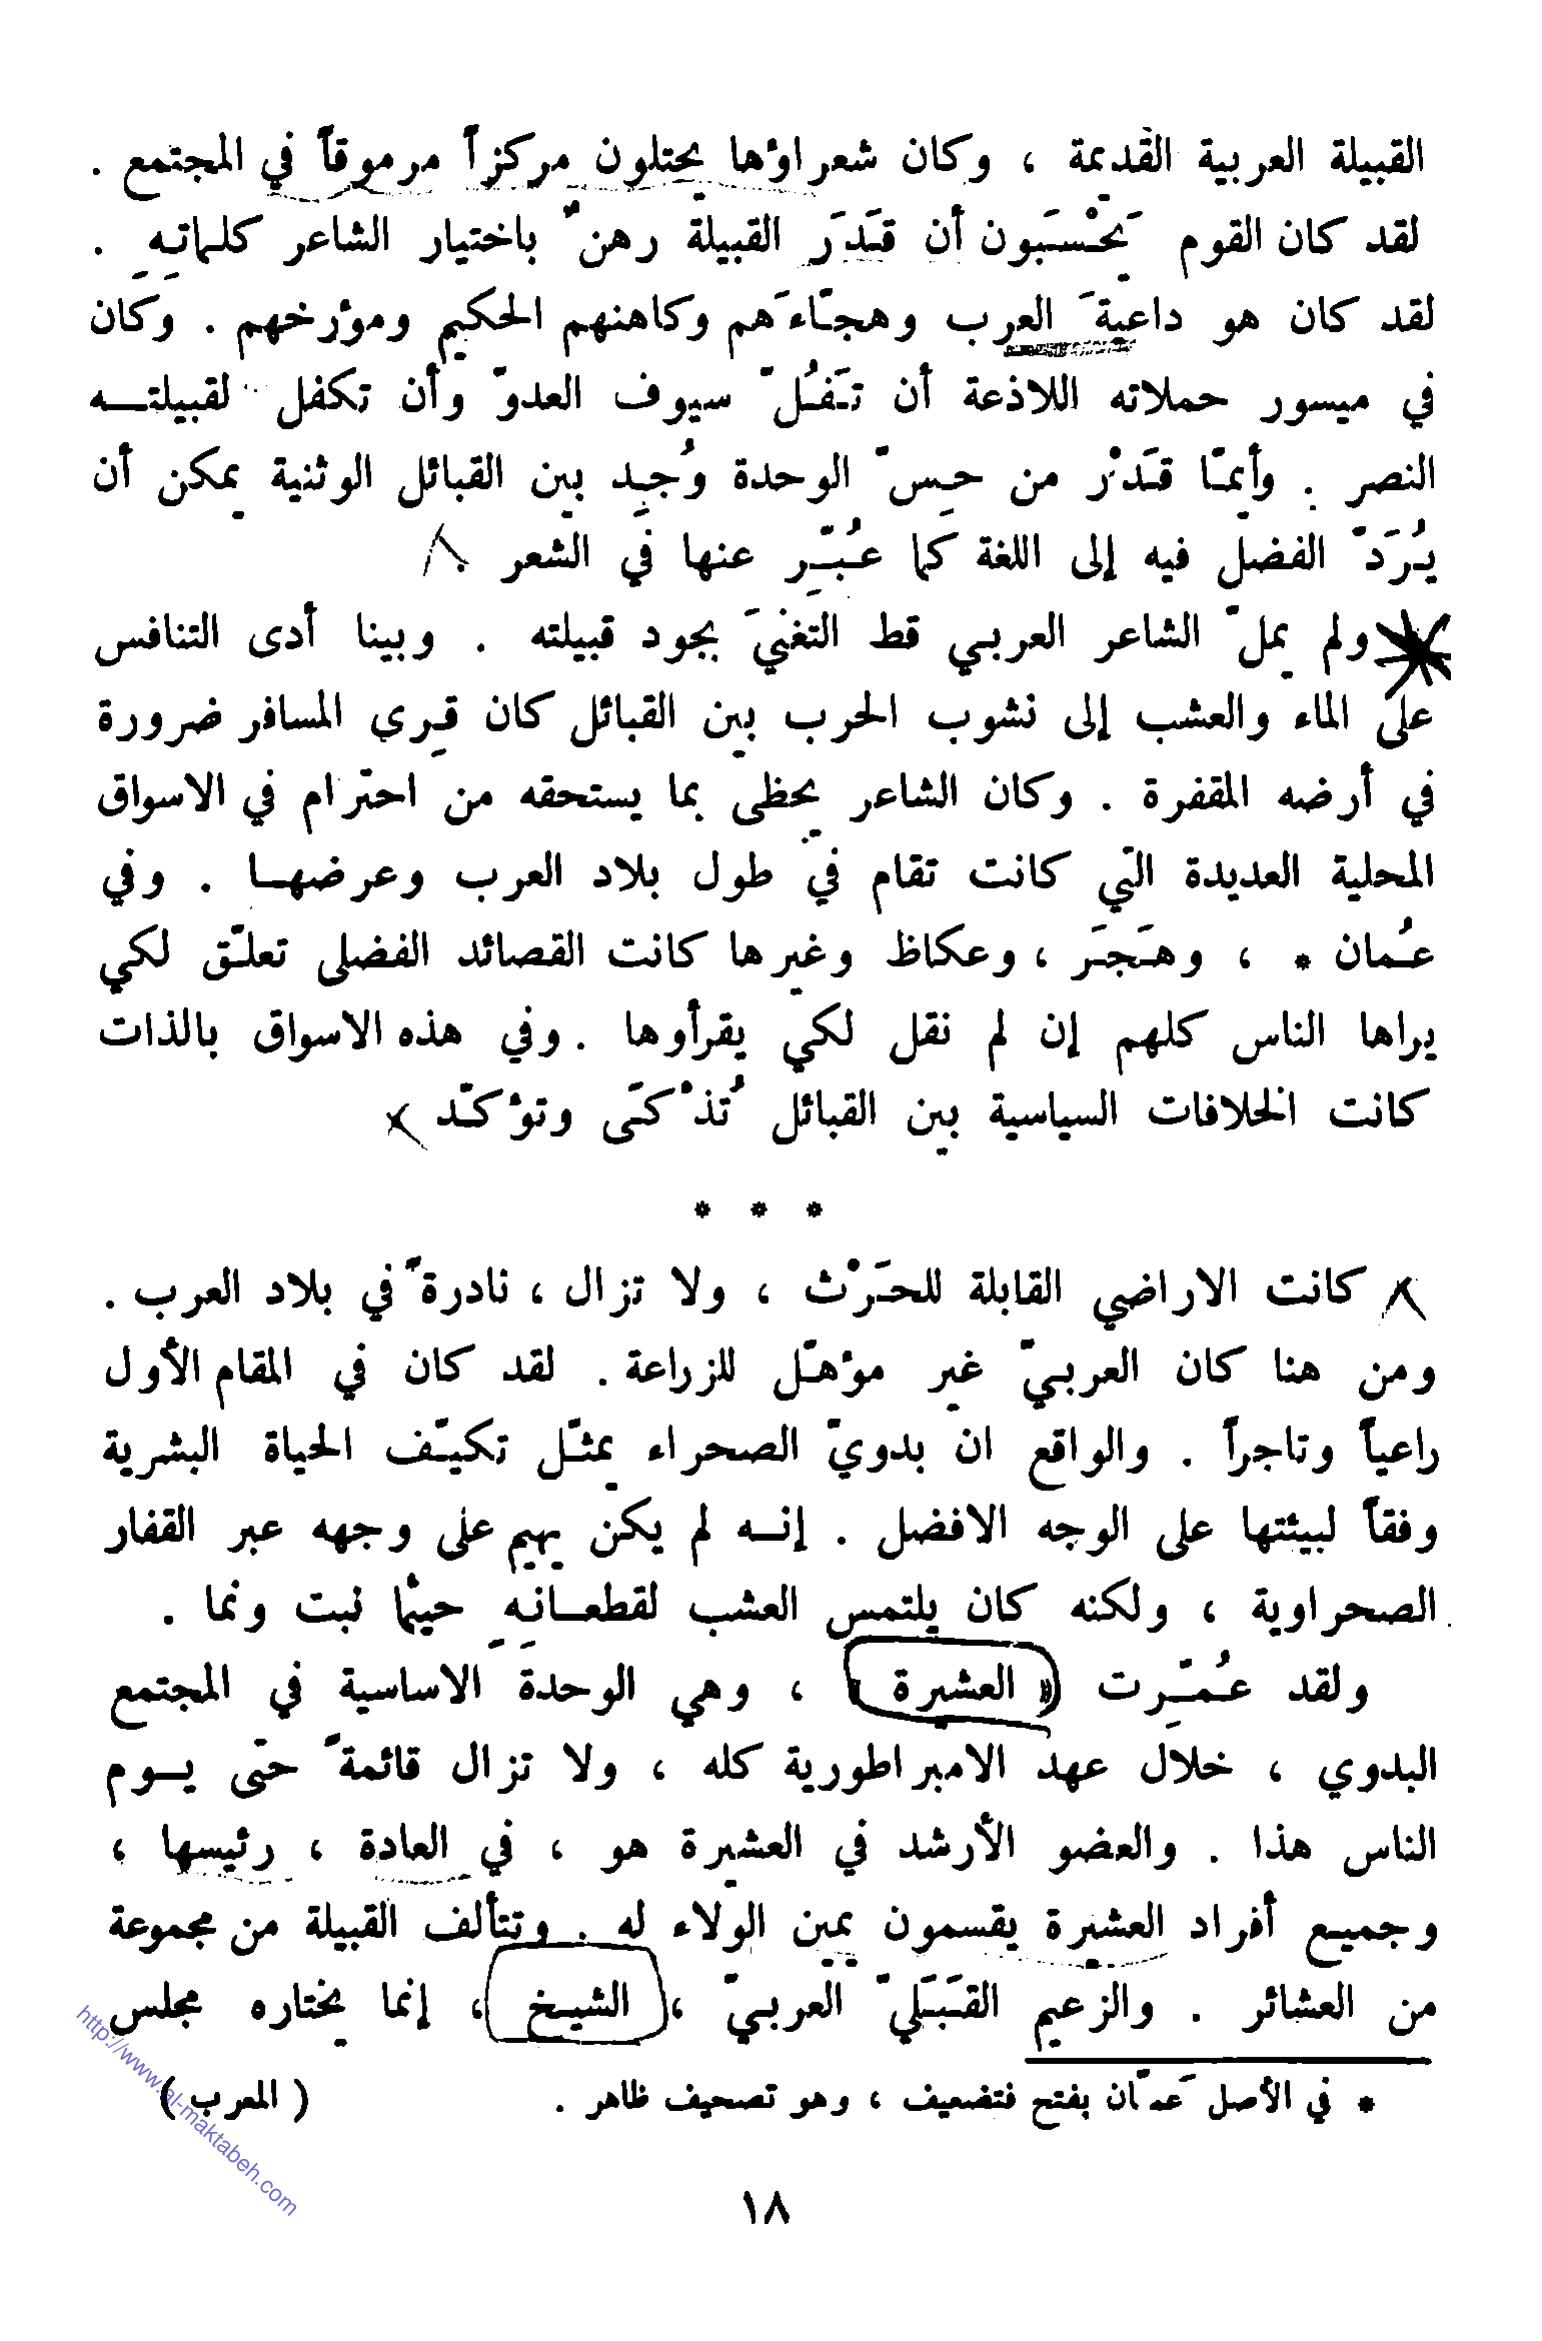 القبيلة العربية القديمة ، وكان شعراؤها يحتلون مركزاً مرموقاً في المجتمع .
لقد كان القوم يَحْسَبون أن قَدَرَ القبيلة رهنٌ باختيار الشاعر كلماتِهِ .
لقد كان هو داعيةَ العرب وهجّاءَهم وكاهنهم الحكيم ومؤرخهم . وكان
في ميسور حملاته اللاذعة أن تَفُلّ سيوف العدوّ وأن تكفل لقبيلتــه
النصر . وأيمّا قَدْر من حِسّ الوحدة وُجِد بين القبائل الوثنية يمكن أن
يُرَدّ الفضل فيه إلى اللغة كما عُبّر عنها في الشعر .
ولم يملّ الشاعر العربي قط التغنيَ بجود قبيلته . وبينا أدى التنافس
على الماء والعشب إلى نشوب الحرب بين القبائل كان قِرى المسافر ضرورة
في أرضه المقفرة . وكان الشاعر يحظى بما يستحقه من احترام في الاسواق
المحلية العديدة التي كانت تقام في طول بلاد العرب وعرضهـا . وفي
عُمان * ، وهَجَر ، وعكاظ وغيرها كانت القصائد الفضلى تعلّق لكي
يراها الناس كلهم إن لم نقل لكي يقرأوها . وفي هذه الاسواق بالذات
كانت الخلافات السياسية بين القبائل تُذْكَى وتؤكّد
* * *
كانت الاراضي القابلة للحَرْث ، ولا تزال ، نادرةً في بلاد العرب .
ومن هنا كان العربيّ غير مؤهّل للزراعة . لقد كان في المقام الأول
راعياً وتاجراً . والواقع ان بدويّ الصحراء يمثّل تكيّف الحياة البشرية
وفقاً لبيئتها على الوجه الافضل . إنــه لم يكن يهيم على وجهه عبر القفار
الصحراوية ، ولكنه كان يلتمس العشب لقطعــانِهِ حيثما نبت ونما .
ولقد عُمّرت « العشيرة » ، وهي الوحدة الاساسية في المجتمع
البدوي ، خلال عهد الامبراطورية كله ، ولا تزال قائمةً حتى يــوم
الناس هذا . والعضو الأرشد في العشيرة هو ، في العادة ، رئيسها ،
وجميع أفراد العشيرة يقسمون يمين الولاء له . وتتألف القبيلة من مجموعة
من العشائر . والزعيم القَبَليّ العربيّ ، الشيخ ، إنما يختاره مجلس
* في الأصل عَمّان بفتح فتضعيف ، وهو تصحيف ظاهر . ( المعرب )
١٨
http://www.al-maktabeh.com